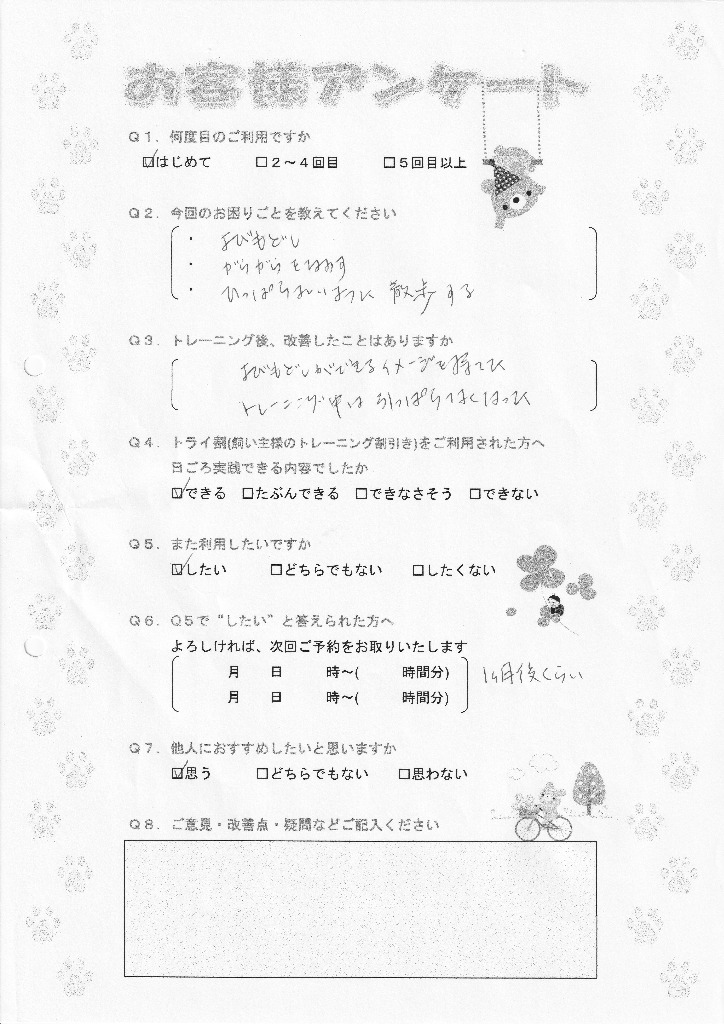 お客様アンケート
Q1．何度目のご利用ですか
☑はじめて □2～4回目 □5回目以上
Q2．今回のお困りごとを教えてください
・よびもどし
・がらがらをなおす
・ひっぱらないように 散歩する
Q3．トレーニング後、改善したことはありますか
よびもどしができるイメージを持てた
トレーニング中は引っぱらなくなった
Q4．トライ割(飼い主様のトレーニング割引き)をご利用された方へ
日ごろ実践できる内容でしたか
☑できる □たぶんできる □できなさそう □できない
Q5．また利用したいですか
☑したい □どちらでもない □したくない
Q6．Q5で“したい”と答えられた方へ
よろしければ、次回ご予約をお取りいたします
月 日 時～( 時間分)
月 日 時～( 時間分)
1ヶ月後くらい
Q7．他人におすすめしたいと思いますか
☑思う □どちらでもない □思わない
Q8．ご意見・改善点・疑問などご記入ください